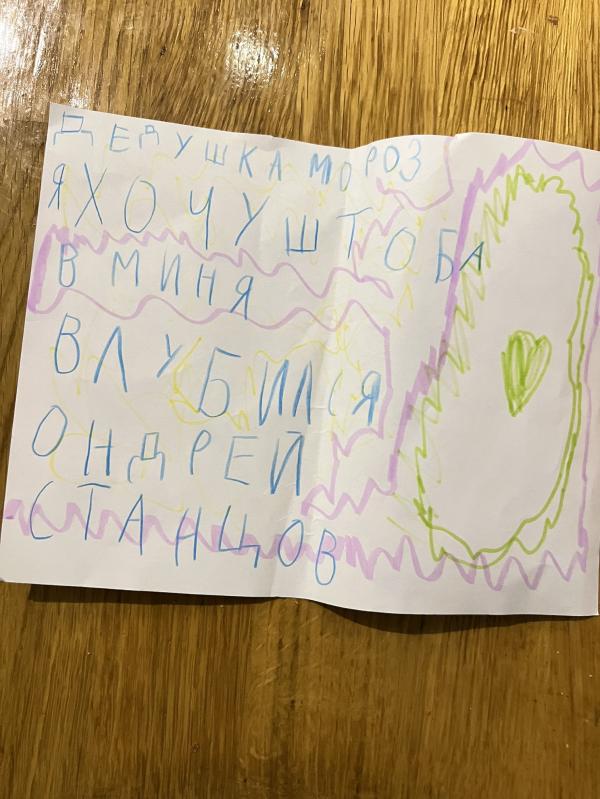 ДЕДУШКА МОРОЗ
Я ХОЧУ ШТОБА
В МИНЯ
ВЛУБИЛСЯ
ОНДРЕЙ
СТАНЦОВ